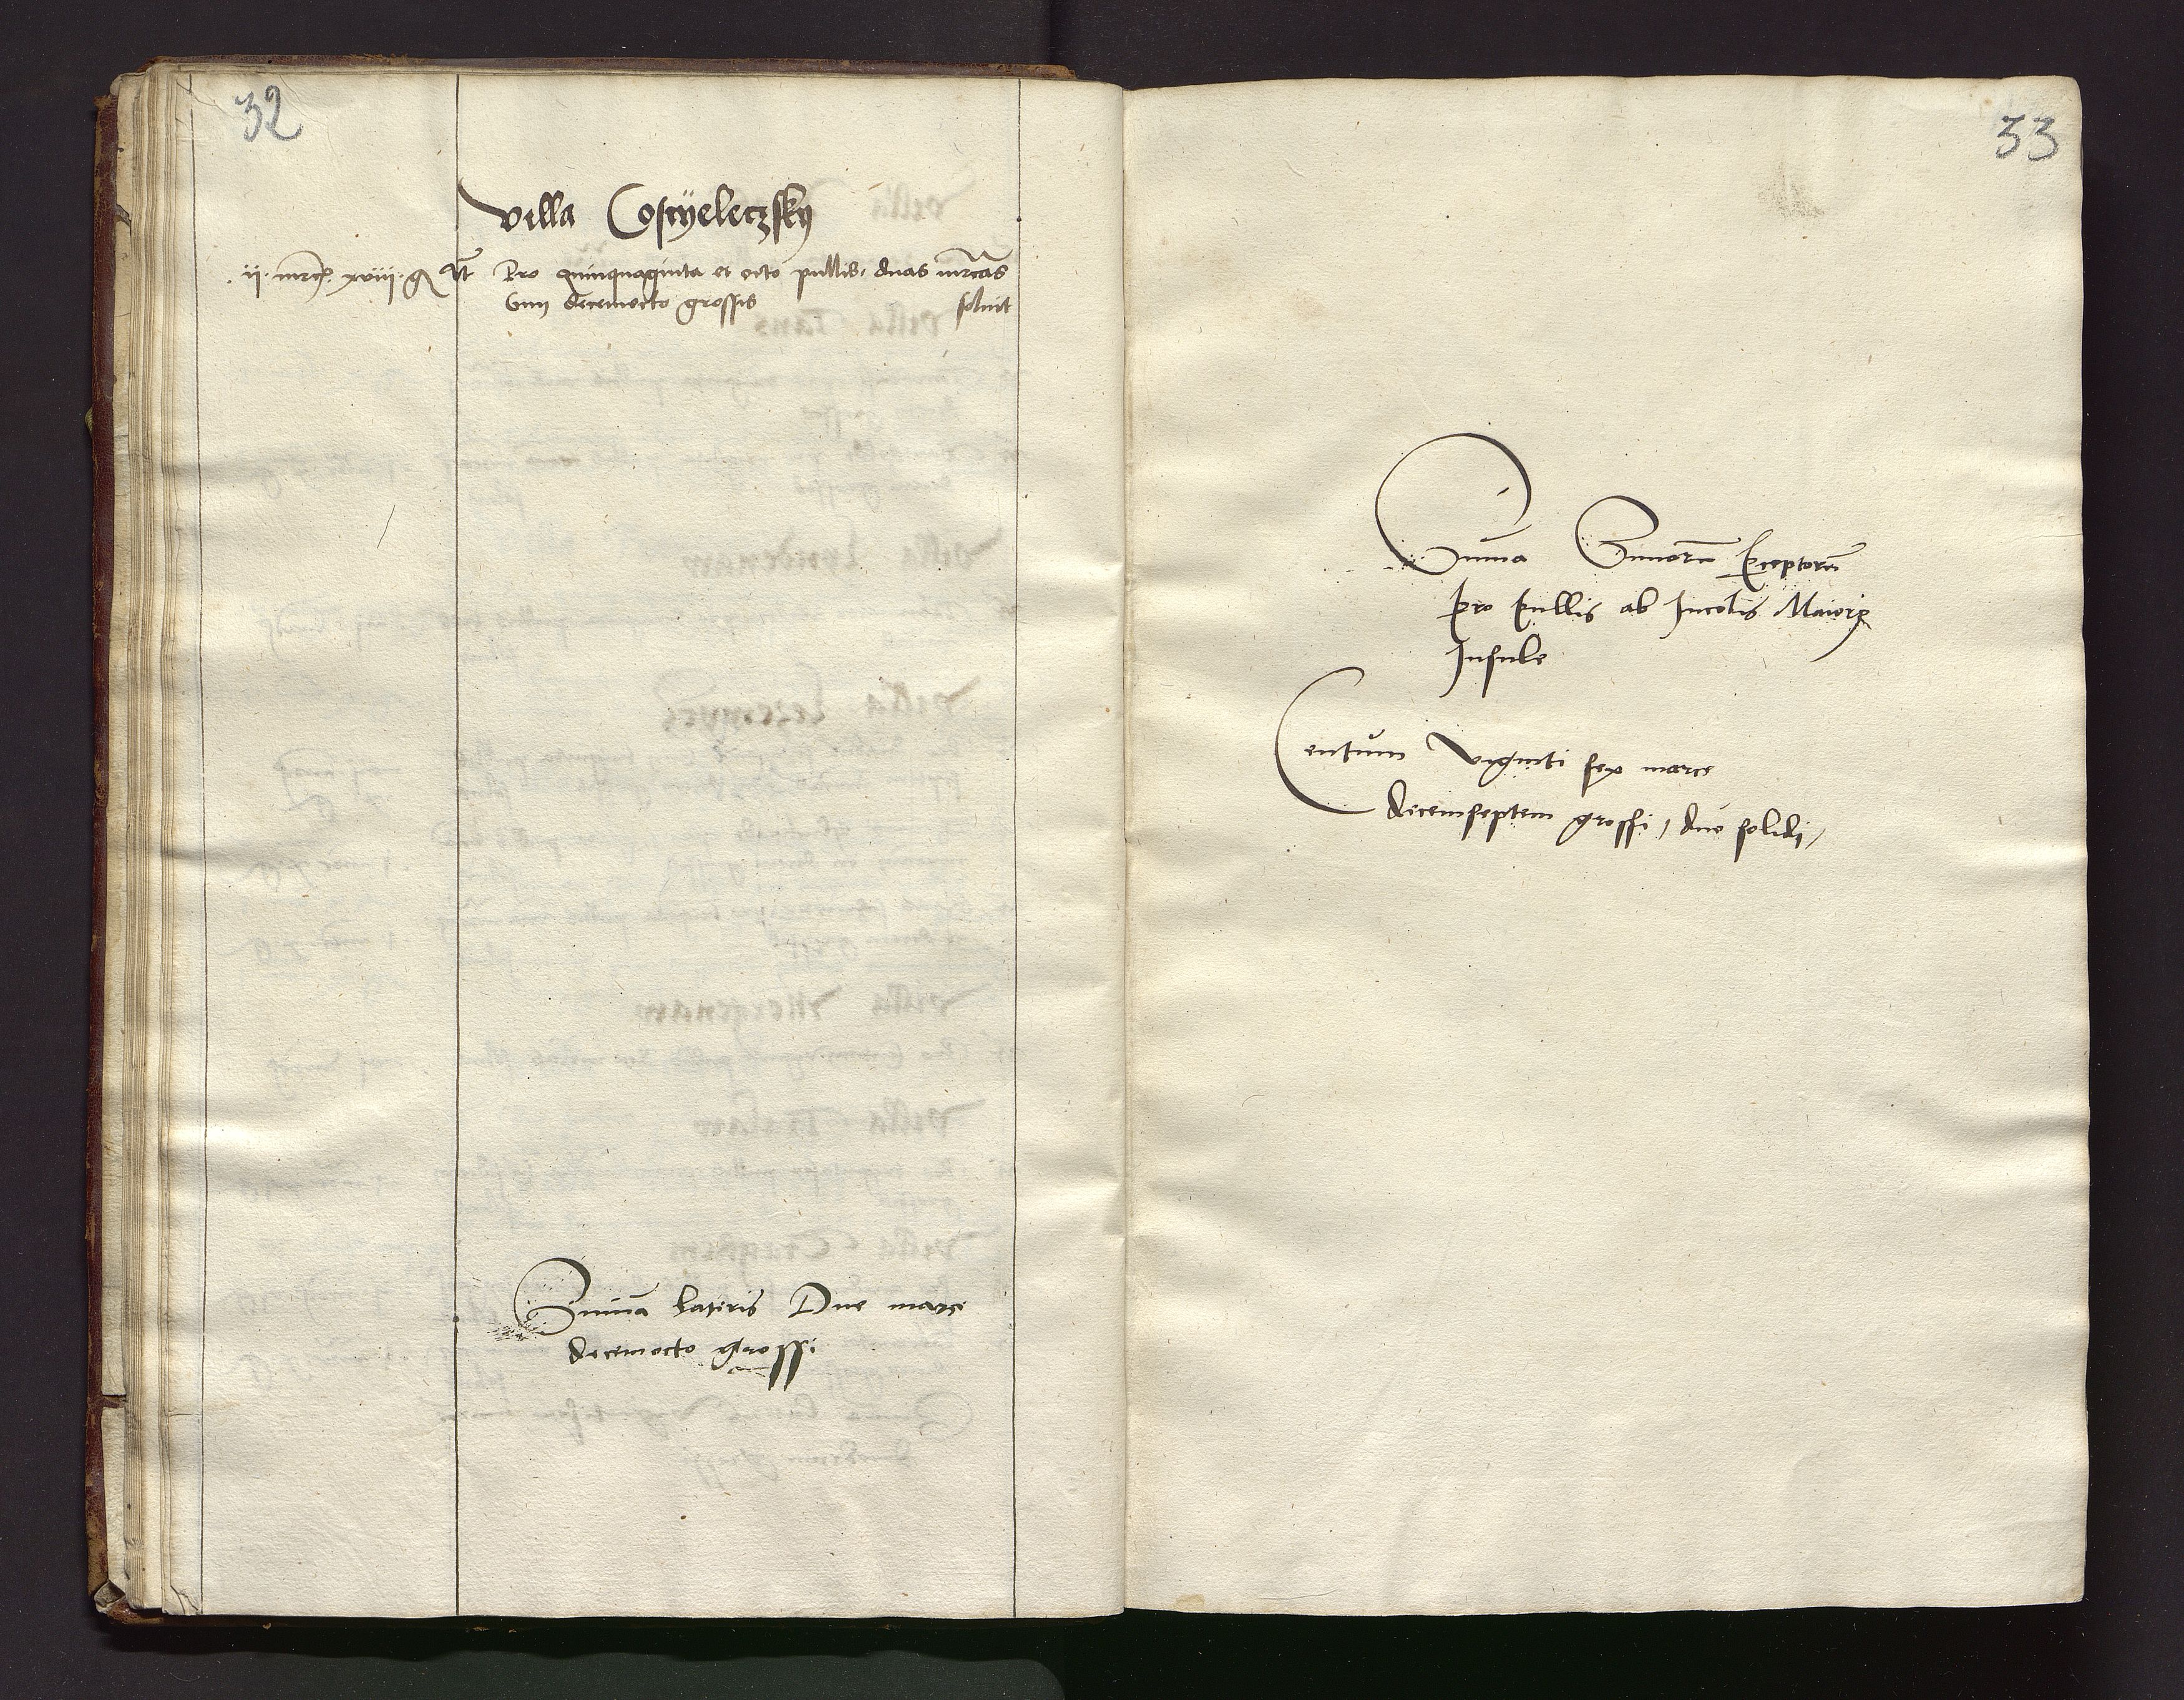 32
Villa Coscÿeleczsky
ii mrcs xviii g It Pro quinquaginta et octo pullis duas mrcas
Cum decemocto grossis soluit
Summa lateris Due marce
decemocto grossi
33
Summa Summarum
pro pullis ab Incolis Maioris
Insule
Centum Viginti sex marce
decemseptem grossi, duo solidi,